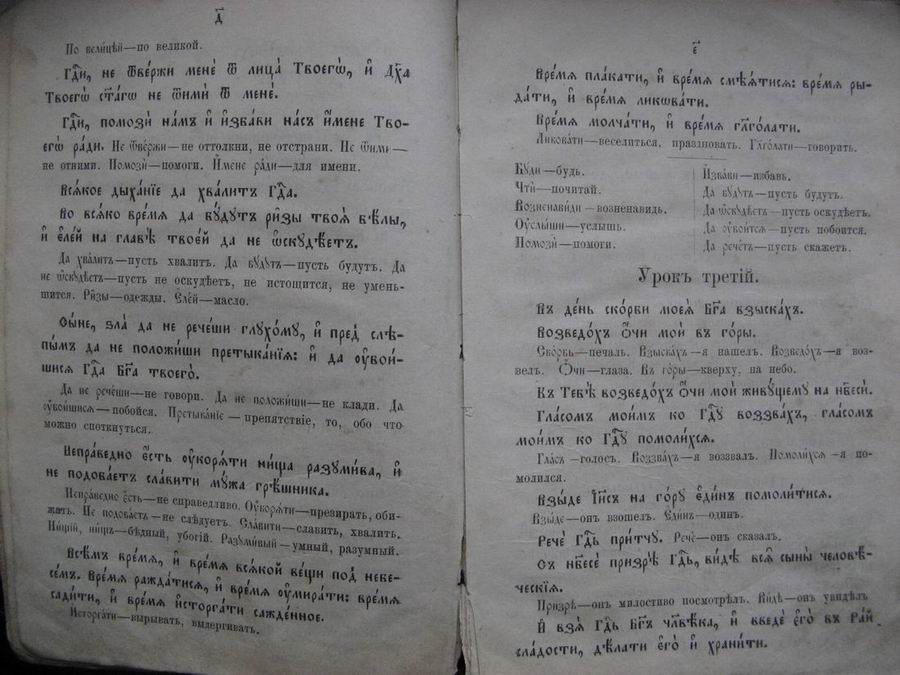 д҃
По вели́цѣй—по великой.
Гдⷭ҇и, не ѿве́ржи менѐ ѿ лица̀ Твоегѡ̀, и҆ Дх҃а
Твоегѡ̀ ст҃а́гѡ не ѿимѝ ѿ менѐ.
Гдⷭ҇и, помозѝ на́мъ и҆ и҆зба́ви на́съ и҆́мене Тво-
егѡ̀ ра́ди. Не ѿве́ржи—не оттолкни, не отстрани. Не ѿимѝ—
не отними. Помозѝ—помоги. И҆́мене ра́ди—для имени.
Вся́кое дыха́нїе да хва́литъ Гдⷭ҇а.
Во вся́ко вре́мя да бу́дутъ ри̑зы твоѧ̑ бѣ̑лы,
и҆ є҆ле́й на главѣ̀ твое́й да не ѡ҆скудѣ́етъ.
Да хва́литъ—пусть хвалитъ. Да бу́дутъ—пусть будутъ. Да
не ѡ҆скудѣ́етъ—пусть не оскудѣетъ, не истощится, не умень-
шится. Ри̑зы—одежды. Є҆ле́й—масло.
Сы́не, ѕла̀ да не рече́ши глухо́му, и҆ пред слѣ-
пы́мъ да не положи́ши претыка́нїѧ: и҆ да ᲂу҆бои́-
шисѧ Гдⷭ҇а Бг҃а твоего̀.
Да не рече́ши—не говори. Да не положи́ши—не клади. Да
ᲂу҆бои́шисѧ—побойся. Претыка́нїе—препятствіе, то, обо что
можно споткнуться.
Непра́ведно є҆́сть ᲂу҆корѧ́ти ни́ща разуми́ва, и҆
не подоба́етъ сла́вити му́жа грѣ́шника.
Непра́ведно є҆́сть—не справедливо. Оу҆корѧ́ти—презирать, оби-
жать. Не подоба́етъ—не слѣдуетъ. Сла́вити—славить, хвалить.
Ни́щїй, ни́щъ—бѣдный, убогій. Разуми́вый—умный, разумный.
Всѣ̑мъ вре́мѧ, и҆ вре́мѧ всѧ́кой ве́щи под небе-
се́мъ. Вре́мѧ ражда́тисѧ, и҆ вре́мѧ ᲂу҆мира́ти: вре́мѧ
сади́ти, и҆ вре́мѧ и҆сторга́ти сажде́нное.
И҆сторга́ти—вырывать, выдергивать.
є҃
Вре́мѧ пла́кати, и҆ вре́мѧ смѣѧ́тисѧ: вре́мѧ ры-
да́ти, и҆ вре́мѧ ликѡва́ти.
Вре́мѧ молча́ти, и҆ вре́мѧ гл҃го́лати.
Ликова́ти—веселиться, праздновать. Глаго́лати—говорить.
Бу́ди—будь.
Чтѝ—почитай.
Возненави́ди—возненавидь.
Оу҆слы́ши—услышь.
Помозѝ—помоги.
И҆зба́ви—избавь.
Да бу́дутъ—пусть будутъ.
Да ѡ҆скудѣ́етъ—пусть оскудѣетъ.
Да ᲂу҆бои́тсѧ—пусть побоится.
Да рече́тъ—пусть скажетъ.
Урокъ третій.
Въ де́нь ско́рби моеѧ̀ Бг҃а взыска́хъ.
Возведо́хъ ѻ҆́чи моѝ въ го́ры.
Ско́рбь—печаль. Взыска́хъ—я нашелъ. Возведо́хъ—я воз-
велъ. Ѻ҆́чи—глаза. Въ го́ры—кверху, на небо.
Къ Тебѣ̀ возведо́хъ ѻ҆́чи моѝ живу́щему на нб҃сѝ.
Гла́сомъ мои́мъ ко Гдⷭ҇у воззва́хъ, гла́сомъ
мои́мъ ко Гдⷭ҇у помоли́хсѧ.
Гла́съ—голосъ. Воззва́хъ—я воззвалъ. Помоли́хсѧ—я по-
молился.
Взы́де І҆и҃съ на го́ру є҆ди́нъ помоли́тисѧ.
Взы́де—онъ взошелъ. Є҆ди́нъ—одинъ.
Речѐ Гдⷭ҇ь при́тчу. Речѐ—онъ сказалъ.
Съ нб҃сѐ призрѣ̀ Гдⷭ҇ь, ви́дѣ всѧ̑ сы́ны человѣ́-
ческїѧ.
Призрѣ̀—онъ милостиво посмотрѣлъ. Ви́дѣ—онъ увидѣлъ
И҆ взѧ̀ Гдⷭ҇ь Бг҃ъ чл҃вѣ́ка, и҆ введѐ є҆го̀ въ ра́й
сла́дости, дѣ́лати є҆го̀ и҆ храни́ти.